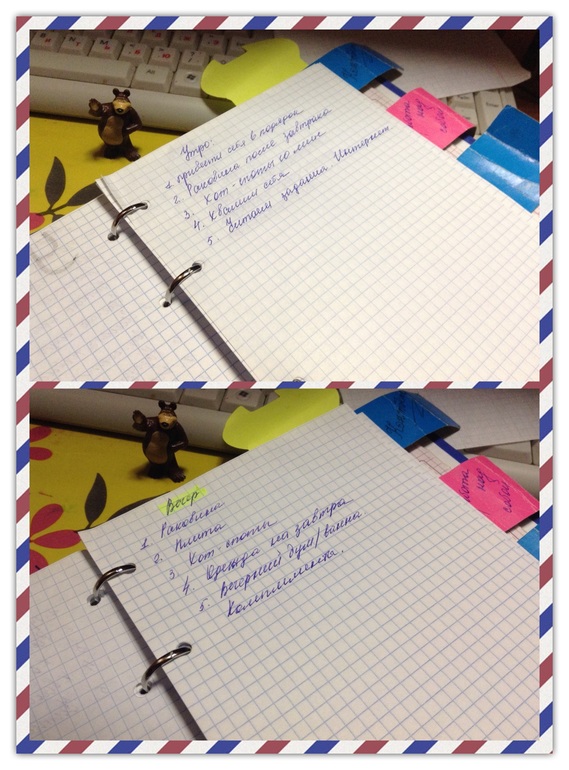 Утро:
1. привести себя в порядок
2. Раковина после завтрака
3. Кот-споты 10 мин
4. Хвалим себя
5. Читаем задания. Интернет
Вечер
1. Раковина
2. Плита
3. Кот. споты
4. Одежда на завтра
5. Вечерний душ/ванна
Комплименты.